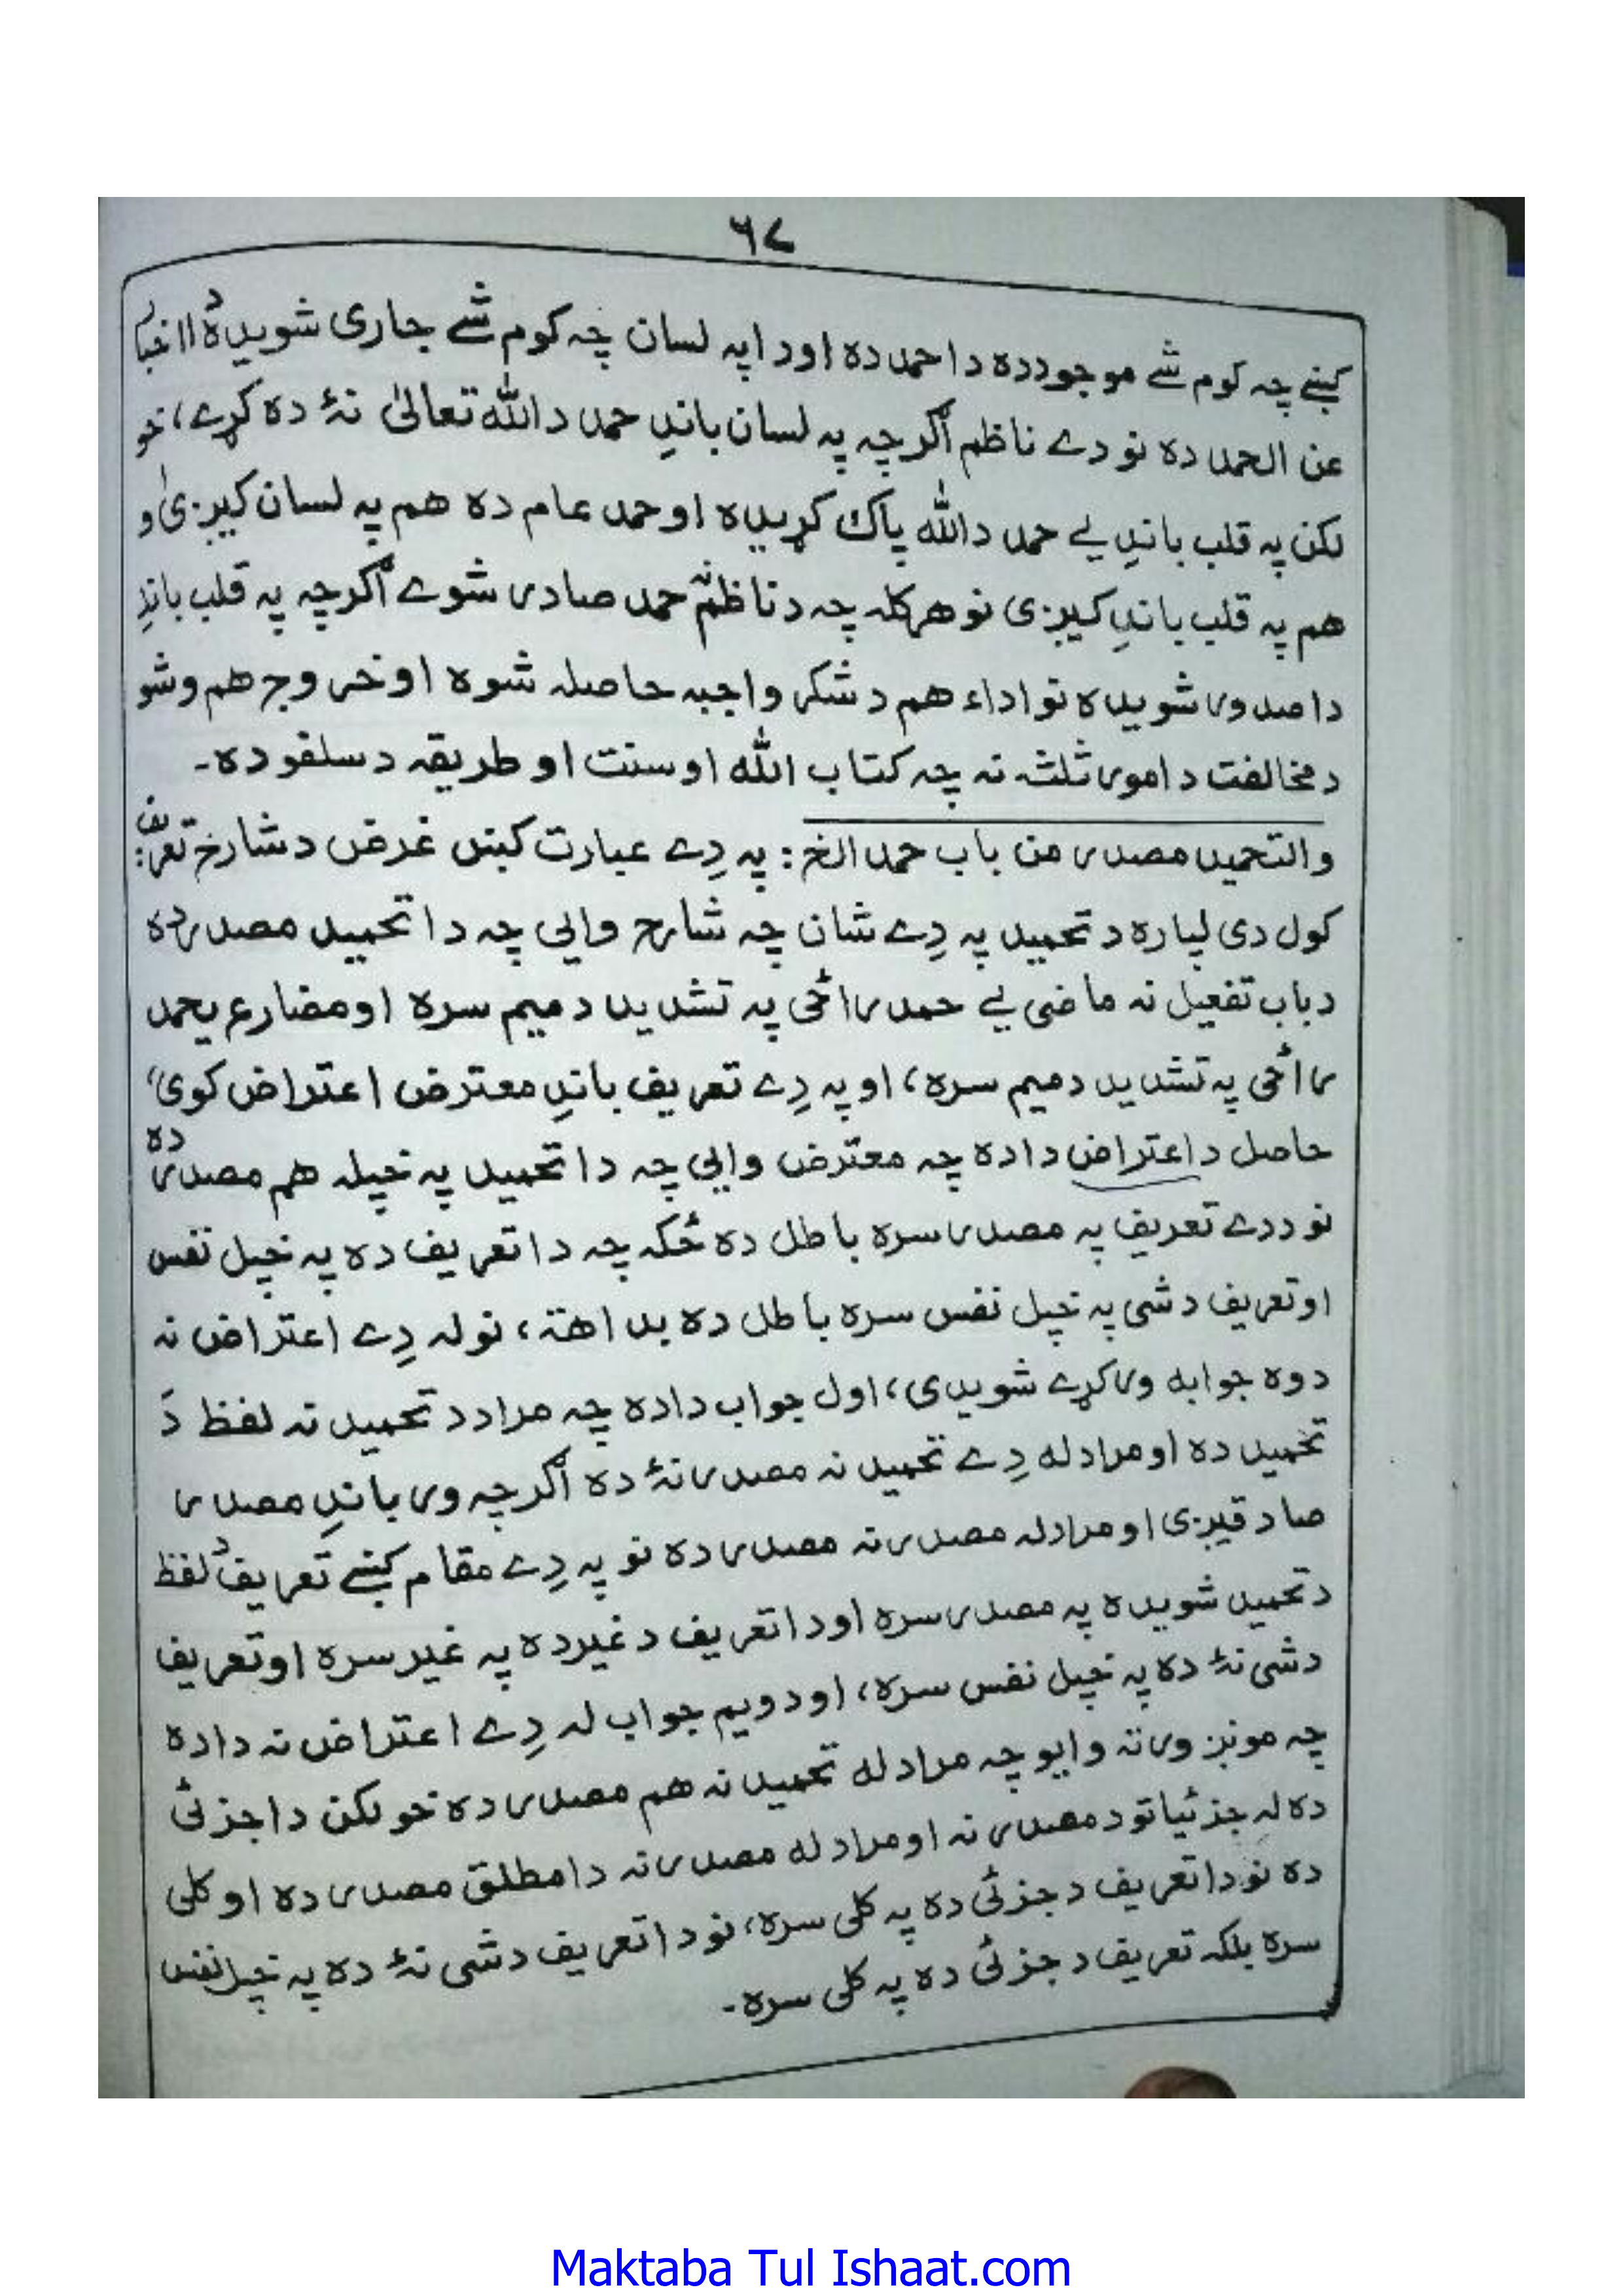 ٦٧
کښے چہ کوم شے موجوددہ داحمددہ اودا پہ لسان چہ کوم شے جاری شویدہ دا اخبار
عن الحمد دہ نو دے ناظم اگرچہ پہ لسان باندِ حمد داللہ تعالیٰ نۂ دہ کړے، خو
لکن پہ قلب باندِ یے حمد داللہ پاک کړیدہ او حمد عام دہ ھم پہ لسان کیږی و
ھم پہ قلب باندِ کیږی نو ھر کلہ چہ د ناظمؒ نہ حمد صادر شوے اگرچہ پہ قلب باندِ
داصدور شویدہ نو اداء ھم د شکر واجبہ حاصلہ شوہ او خروج ھم وشو
د مخالفت د امور ثلثہ نہ چہ کتاب اللہ او سنت او طریقہ د سلفو دہ۔
والتحمید مصدر من باب حمد الخ : پہ دِے عبارت کښں غرض د شارح تعریف :
کول دی لپارہ د تحمید پہ دِے شان چہ شارح وایی چہ دا تحمید مصدر دہ
د باب تفعیل نہ ماضی یے حمد راځی پہ تشدید د میم سرہ او مضارع یحمد
راځی پہ تشدید د میم سرہ، او پہ دِے تعریف باندِ معترض اعتراض کوی،
حاصل د اعتراض دا دہ چہ معترض وایی چہ دا تحمید پہ خپلہ ھم مصدر دہ
نو ددے تعریف پہ مصدر سرہ باطل دہ ځکہ چہ دا تعریف دہ پہ خپل نفس
او تعریف د شی پہ خپل نفس سرہ باطل دہ بداھۃ، نو لہ دِے اعتراض نہ
دوہ جوابہ ورکړے شویدی، اول جواب دادہ چہ مراد د تحمید نہ لفظ دَ
تحمید دہ او مراد لہ دِے تحمید نہ مصدر نۂ دہ اگرچہ ور باندِ مصدر
صادقیږی او مراد لہ مصدر نہ مصدر دہ نو پہ دِے مقام کښے تعریف د لفظ
د تحمید شویدہ پہ مصدر سرہ اودا تعریف د غیر دہ پہ غیر سرہ او تعریف
د شی نۂ دہ پہ خپل نفس سرہ، او دویم جواب لہ دِے اعتراض نہ دادہ
چہ مونږ ورتہ وایو چہ مراد لہ تحمید نہ ھم مصدر دہ خو لکن دا جزئی
دہ لہ جزئیاتو د مصدر نہ او مراد لہ مصدر نہ دا مطلق مصدر دہ او کلی
دہ نو دا تعریف د جزئی دہ پہ کلی سرہ، نو دا تعریف د شی نۂ دہ پہ خپل نفس
سرہ بلکہ تعریف د جزئی دہ پہ کلی سرہ۔
Maktaba Tul Ishaat.com